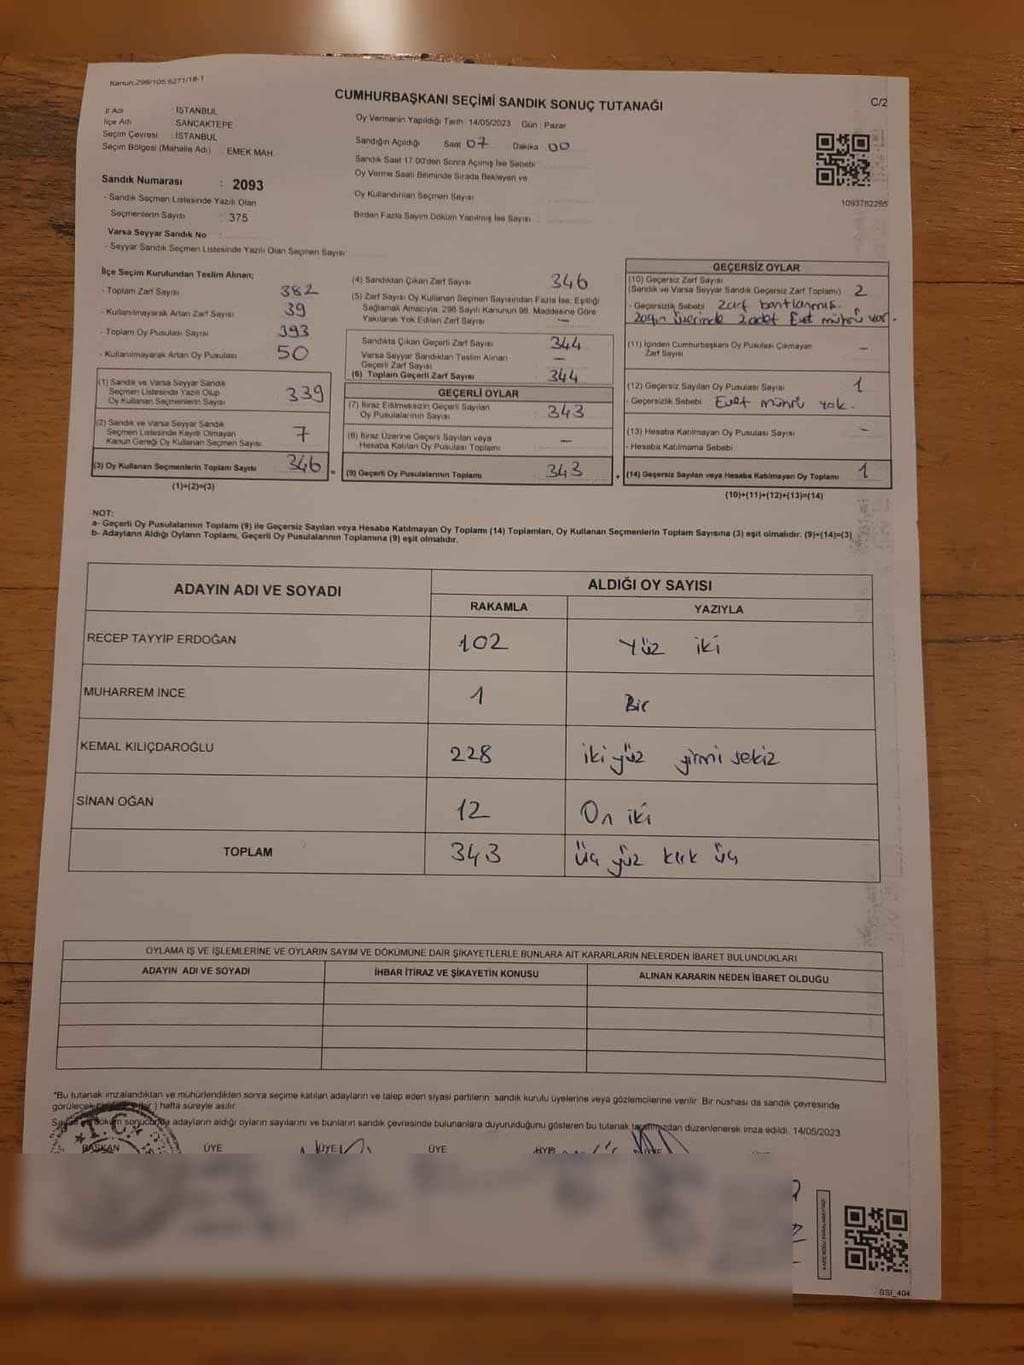 Kanun.298/105.6271/18-1
CUMHURBAŞKANI SEÇİMİ SANDIK SONUÇ TUTANAĞI
C/2
İl Adı : İSTANBUL
İlçe Adı : SANCAKTEPE
Seçim Çevresi : İSTANBUL
Seçim Bölgesi (Mahalle Adı) : EMEK MAH.
Oy Vermenin Yapıldığı Tarih :14/05/2023 Gün : Pazar
Sandığın Açıldığı Saat 07 Dakika 00
Sandık Saat 17.00'den Sonra Açılmış İse Sebebi
Oy Verme Saati Bitiminde Sırada Bekleyen ve
Oy Kullandırılan Seçmen Sayısı
Birden Fazla Sayım Döküm Yapılmış İse Sayısı :
1093782265
Sandık Numarası : 2093
- Sandık Seçmen Listesinde Yazılı Olan
Seçmenlerin Sayısı : 375
Varsa Seyyar Sandık No
- Seyyar Sandık Seçmen Listesinde Yazılı Olan Seçmen Sayısı
İlçe Seçim Kurulundan Teslim Alınan;
- Toplam Zarf Sayısı 382
- Kullanılmayarak Artan Zarf Sayısı 39
- Toplam Oy Pusulası Sayısı 393
- Kullanılmayarak Artan Oy Pusulası 50
(1) Sandık ve Varsa Seyyar Sandık
Seçmen Listesinde Yazılı Olup
Oy Kullanan Seçmenlerin Sayısı 339
(2) Sandık ve Varsa Seyyar Sandık
Seçmen Listesinde Kayıtlı Olmayan
Kanun Gereği Oy Kullanan Seçmen Sayısı 7
(3) Oy Kullanan Seçmenlerin Toplam Sayısı 346
(1)+(2)=(3)
(4) Sandıktan Çıkan Zarf Sayısı 346
(5) Zarf Sayısı Oy Kullanan Seçmen Sayısından Fazla İse, Eşitliği
Sağlamak Amacıyla, 298 Sayılı Kanunun 98. Maddesine Göre
Yakılarak Yok Edilen Zarf Sayısı —
Sandıkta Çıkan Geçerli Zarf Sayısı 344
Varsa Seyyar Sandıktan Teslim Alınan
Geçerli Zarf Sayısı —
(6) Toplam Geçerli Zarf Sayısı 344
GEÇERLİ OYLAR
(7) İtiraz Edilmeksizin Geçerli Sayılan
Oy Pusulalarının Sayısı 343
(8) İtiraz Üzerine Geçerli Sayılan veya
Hesaba Katılan Oy Pusulası Toplamı —
= (9) Geçerli Oy Pusulalarının Toplamı 343
GEÇERSİZ OYLAR
(10) Geçersiz Zarf Sayısı
(Sandık ve Varsa Seyyar Sandık Geçersiz Zarf Toplamı) 2
- Geçersizlik Sebebi Zarf bantlanmış.
Zarfın üzerinde 2 adet Evet mührü var.
(11) İçinden Cumhurbaşkanı Oy Pusulası Çıkmayan
Zarf Sayısı —
(12) Geçersiz Sayılan Oy Pusulası Sayısı 1
- Geçersizlik Sebebi Evet mührü yok.
(13) Hesaba Katılmayan Oy Pusulası Sayısı —
- Hesaba Katılmama Sebebi
+ (14) Geçersiz Sayılan veya Hesaba Katılmayan Oy Toplamı 1
(10)+(11)+(12)+(13)=(14)
NOT:
a- Geçerli Oy Pusulalarının Toplamı (9) ile Geçersiz Sayılan veya Hesaba Katılmayan Oy Toplamı (14) Toplamları, Oy Kullanan Seçmenlerin Toplam Sayısına (3) eşit olmalıdır. (9)+(14)=(3)
b- Adayların Aldığı Oyların Toplamı, Geçerli Oy Pusulalarının Toplamına (9) eşit olmalıdır.
ADAYIN ADI VE SOYADI ALDIĞI OY SAYISI
RAKAMLA YAZIYLA
RECEP TAYYİP ERDOĞAN 102 Yüz iki
MUHARREM İNCE 1 Bir
KEMAL KILIÇDAROĞLU 228 iki yüz yirmi sekiz
SİNAN OĞAN 12 On iki
TOPLAM 343 üç yüz kırk üç
OYLAMA İŞ VE İŞLEMLERİNE VE OYLARIN SAYIM VE DÖKÜMÜNE DAİR ŞİKAYETLERLE BUNLARA AİT KARARLARIN NELERDEN İBARET BULUNDUKLARI
ADAYIN ADI VE SOYADI İHBAR İTİRAZ VE ŞİKAYETİN KONUSU ALINAN KARARIN NEDEN İBARET OLDUĞU
*Bu tutanak imzalandıktan ve mühürlendikten sonra seçime katılan adayların ve talep eden siyasi partilerin sandık kurulu üyelerine veya gözlemcilerine verilir. Bir nüshası da sandık çevresinde
görülecek hafta süreyle asılır.
Sayım döküm sonucunda adayların aldığı oyların sayılarını ve bunların sandık çevresinde bulunanlara duyurulduğunu gösteren bu tutanak tarafımızdan düzenlenerek imza edildi. 14/05/2023
T.C.
BAŞKAN ÜYE ÜYE ÜYE ÜYE
SSI_404